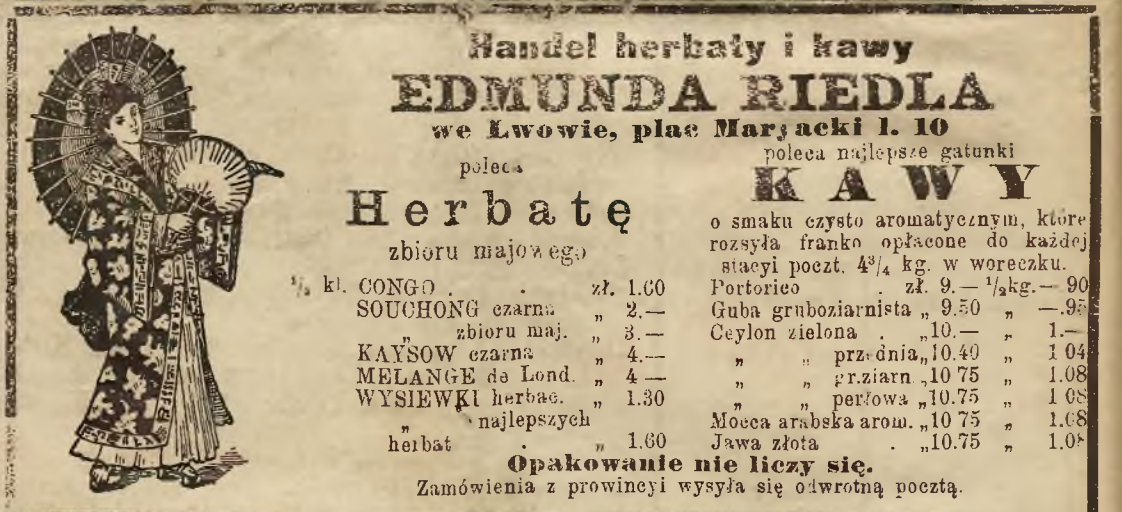 Handel herbaty i kawy
EDMUNDA RIEDLA
we Lwowie, plac Maryacki l. 10
poleca
Herbatę
zbioru majowego
½ kl. CONGO . . zł. 1.60
SOUCHONG czarna „ 2.—
„ zbioru maj. „ 3.—
KAYSOW czarna „ 4.—
MELANGE de Lond. „ 4 —
WYSIEWKI herbac. „ 1.30
„ najlepszych
herbat . „ 1.60
poleca najlepsze gatunki
KAWY
o smaku czysto aromatycznym, które
rozsyła franko opłacone do każdej
stacyi poczt. 4¾ kg. w woreczku.
Portorico . zł. 9.— ½kg.— 90
Guba gruboziarnista „ 9.50 „ —.95
Ceylon zielona . „10.— „ 1.—
„ „ przednia„10.40 „ 1 04
„ „ gr.ziarn „10 75 „ 1.08
„ „ perłowa „10.75 „ 1 08
Mocca arabska arom. „10 75 „ 1.08
Jawa złota . „10.75 „ 1.08
Opakowanie nie liczy się.
Zamówienia z prowincyi wysyła się odwrotną pocztą.